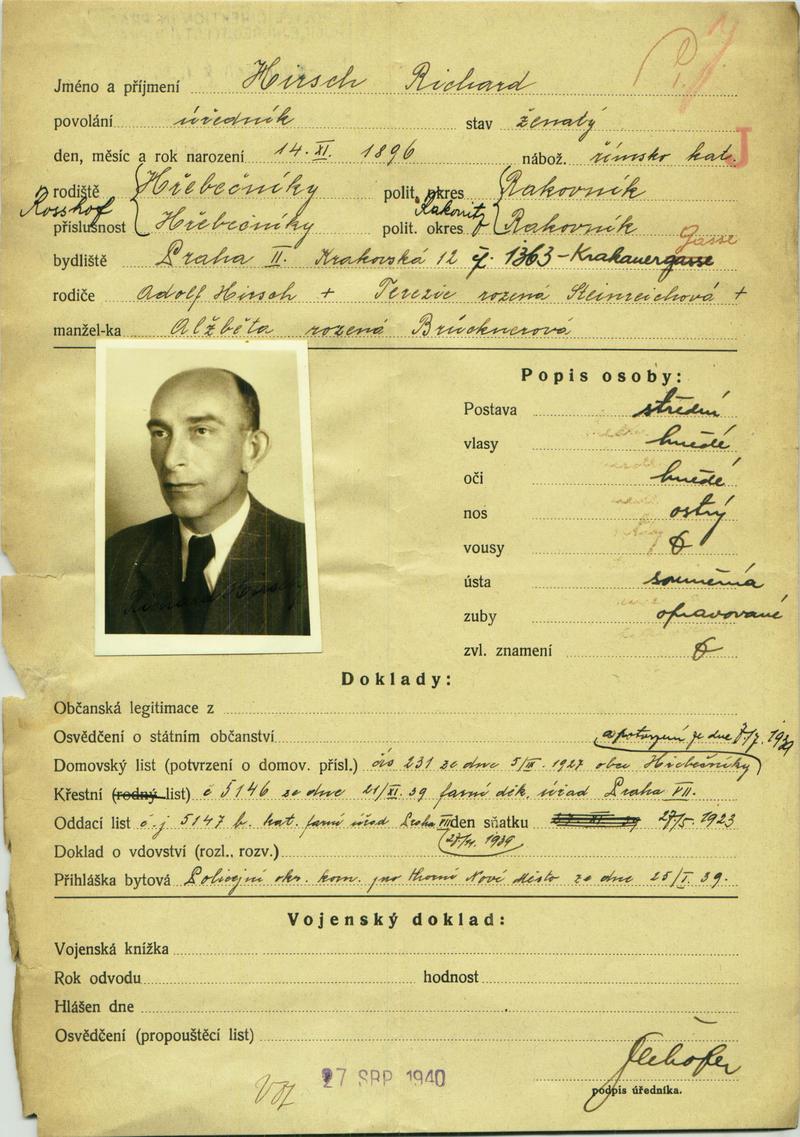 Jméno a příjmení Hirsch Richard
povolání úředník stav ženatý
den, měsíc a rok narození 14. XI. 1896 nábož. římsko kat. J
rodiště Hřebečníky polit. okres Rakovník
Rosshof Rakonitz
příslušnost Hřebečníky polit. okres Rakovník
Gasse
bydliště Praha II. Krakovská 12 č. 1363 - Krakauergasse
rodiče Adolf Hirsch + Terezie rozená Steinreichová +
manžel-ka Alžběta rozená Brücknerová
Popis osoby:
Postava střední
vlasy hnědé
oči hnědé
nos ostrý
vousy
ústa souměrná
zuby opravované
zvl. znamení
Richard Hirsch
Doklady:
Občanská legitimace z
Osvědčení o státním občanství a potvrzení ze dne 7./7. 1939
Domovský list (potvrzení o domov. přísl.) čís 231 ze dne 5/III. 1927 obce Hřebečníky
Křestní (rodný list) č 5146 ze dne 21/XI. 39 farní děk. úřad Praha VII.
Oddací list č.j 5147 b. kat. farní úřad Praha VII den sňatku 27/5. 1923
27/XI. 1939
Doklad o vdovství (rozl., rozv.)
Přihláška bytová Policejní okr. kom. pro Horní Nové Město ze dne 25/I. 39.
Vojenský doklad:
Vojenská knížka
Rok odvodu hodnost
Hlášen dne
Osvědčení (propouštěcí list)
27 SRP 1940
podpis úředníka.